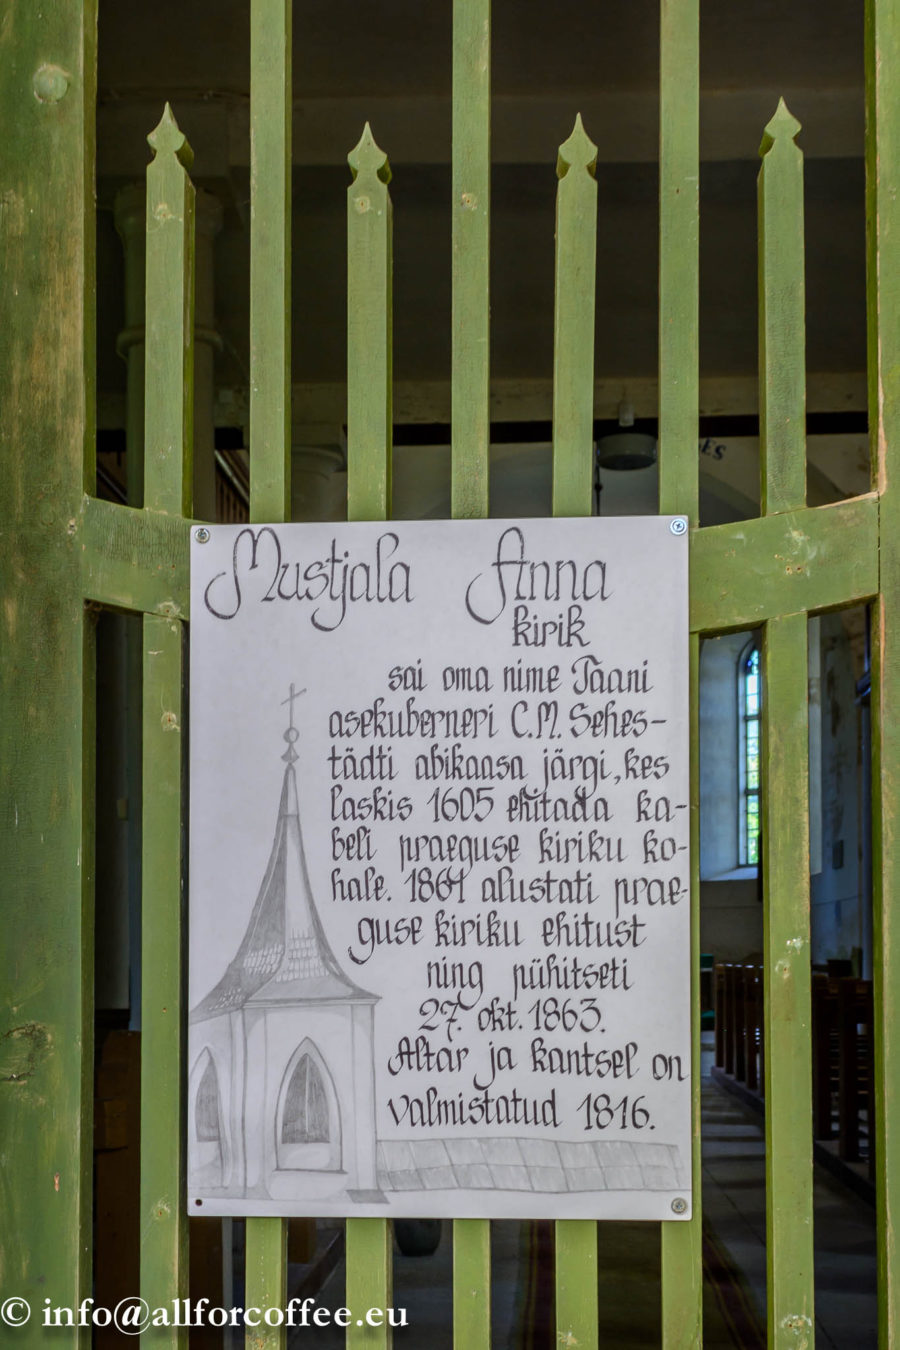 Mustjala Anna
kirik
sai oma nime Taani
asekuberneri C.M. Sehes-
tädti abikaasa järgi, kes
laskis 1605 ehitada ka-
beli praeguse kiriku ko-
hale. 1861 alustati prae-
guse kiriku ehitust
ning pühitseti
27. okt. 1863.
Altar ja kantsel on
valmistatud 1816.
© info@allforcoffee.eu